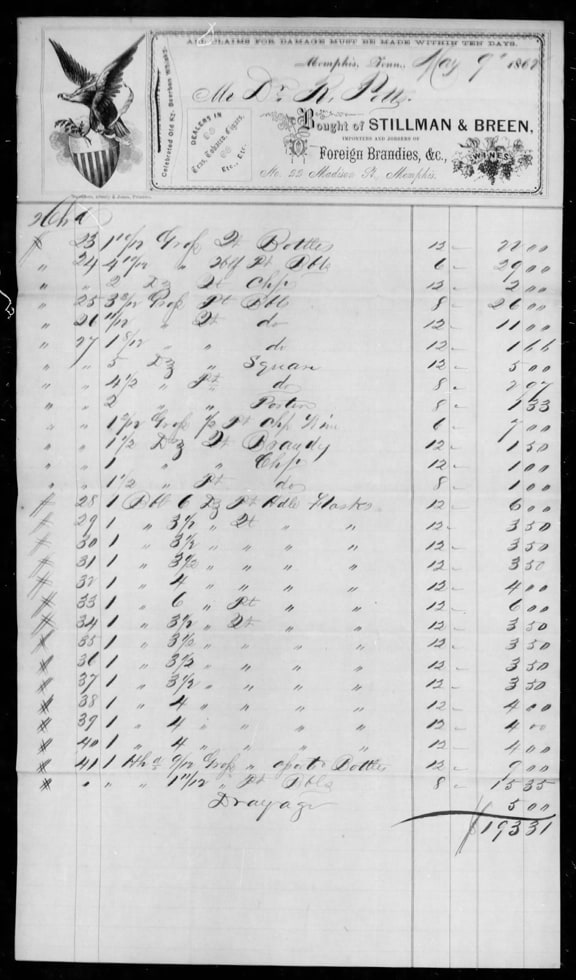 ALL CLAIMS FOR DAMAGE MUST BE MADE WITHIN TEN DAYS.
Memphis, Tenn., May 9th 186
Mr Dr R.
Celebrated Old Ky. Bourbon Whisky.
DEALERS IN
Teas, Tobacco, Cigars,
Etc., Etc.
Bought of STILLMAN & BREEN,
IMPORTERS AND JOBBERS OF
Foreign Brandies, &c.,
WINES
No. 22 Madison St., Memphis.
Hhd
23 1 10/12 Gross Qt Bottles 12 22 00
" 24 4 10/12 " Hlf Pt Btls 6 29 00
" " 2 Dz Qt Chp 12 2 00
" 25 3 Gross Pt Btls 8 26 00
" 26 11/12 " Qt do 12 11 00
" 27 1 " " do 12 1 66
" " 5 Dz " Square 12 5 00
" " 4 1/2 " Pt do 8 2 97
" " 2 " " Porter 8 1 33
" " 1 2/12 Gross 1/2 Pt Chp Wine 6 7 00
" " 1 1/2 Dz Qt Brandy 12 1 50
" " 1 " " Chp 12 1 00
" " 1 1/2 " Pt do 8 1 00
# 28 1 Bbl 6 Dz Pt Hdle Flasks 12 6 00
# 29 1 " 3 1/2 " Qt " " 12 3 50
# 30 1 " 3 1/2 " " " " 12 3 50
# 31 1 " 3 1/2 " " " " 12 3 50
# 32 1 " 4 " " " " 12 4 00
# 33 1 " 6 " Pt " " 12 6 00
# 34 1 " 3 1/2 " Qt " " 12 3 50
# 35 1 " 3 1/2 " " " " 12 3 50
# 36 1 " 3 1/2 " " " " 12 3 50
# 37 1 " 3 1/2 " " " " 12 3 50
# 38 1 " 4 " " " " 12 4 00
# 39 1 " 4 " " " " 12 4 00
# 40 1 " 4 " " " " 12 4 00
# 41 1 Hhd 9/12 Gross " Bottles 12 9 00
# " " " 1 11/12 " Pt Btls 8 15 35
Drayage 5 00
$193 31